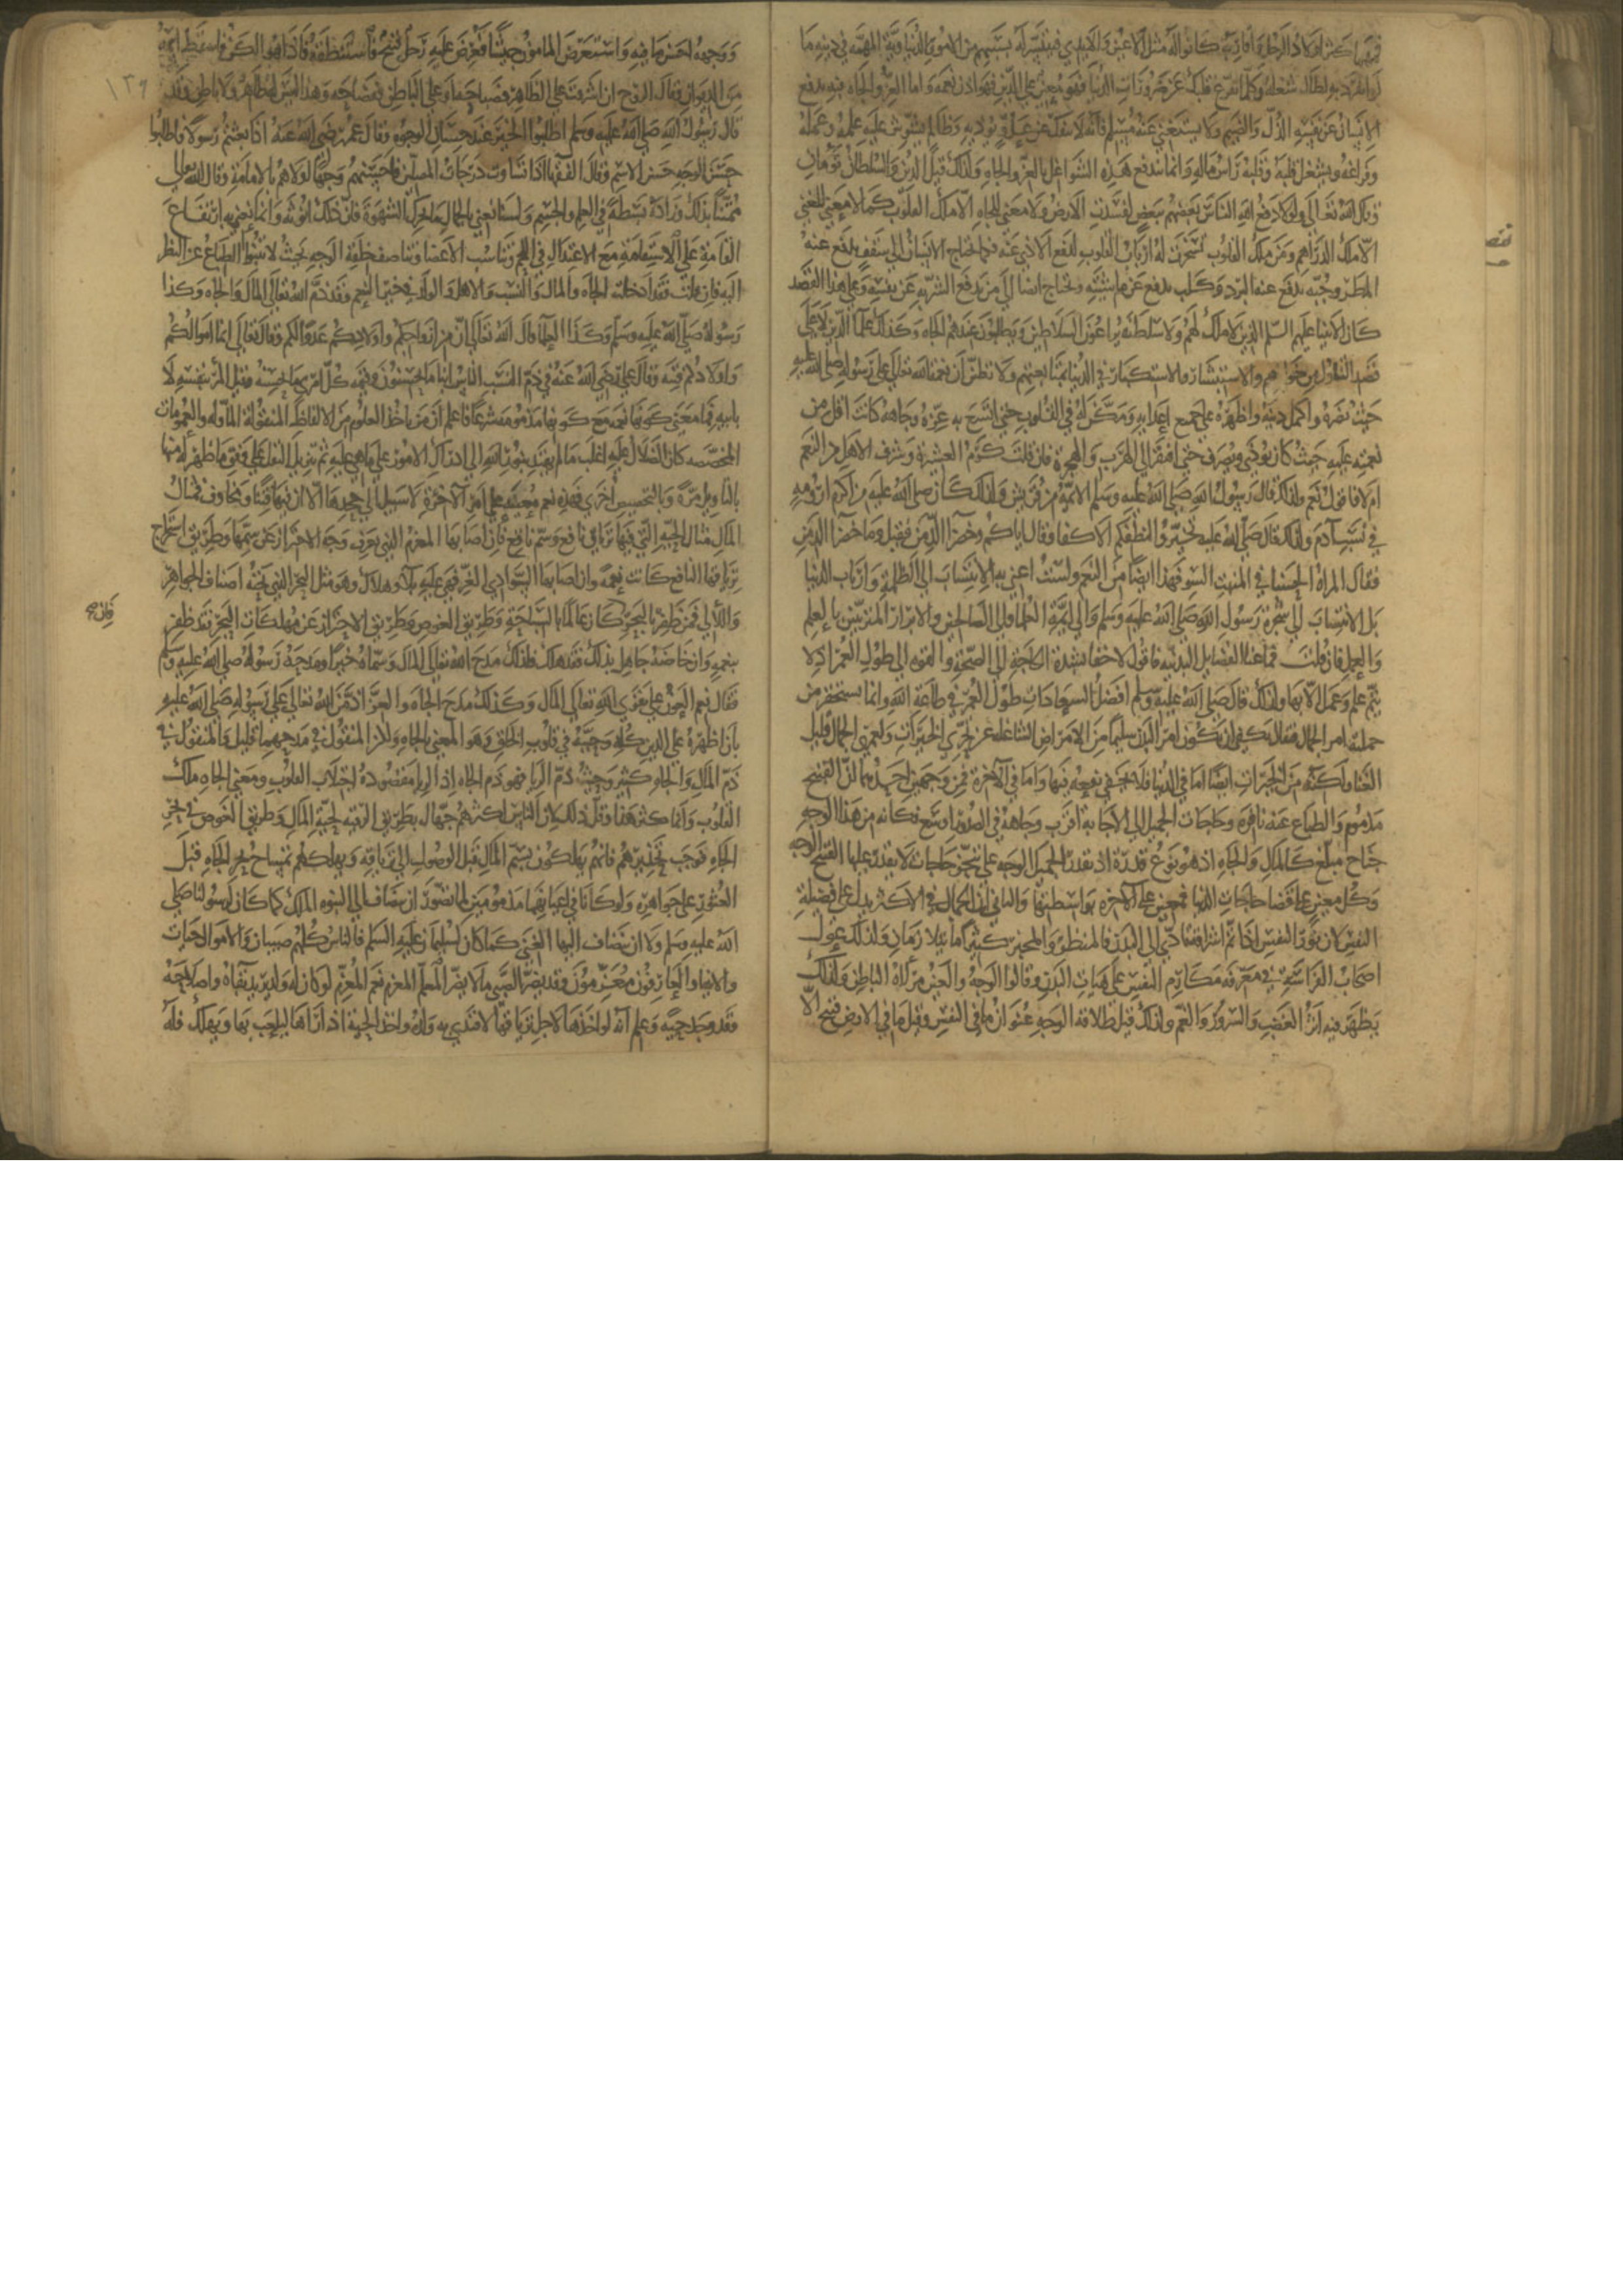 فمهما كثر اولاد الرجل واقاربه كانوا له مثل الاعين والايدي فيتيسر له بسببهم من الامور الدنياوية المهمة في دينه ما
لو انفرد به لطال شغله وكلما تفرغ قلبك عن ضرورات الدنيا فهو معين على الدين فهو اذن نعمة واما العز والجاه فبه يدفع
الانسان عن نفسه الذل والضيم ولا يستغنى عنه مسلم فانه لا ينفك عن عدو يوذيه وظالم يشوش عليه علمه وعمله
وفراغه ويشغل قلبه وقلبه راس ماله وانما تندفع هذه الشواغل بالعز والجاه ولذلك قيل الدين والسلطان توامان
وقال الله تعالى ولولا دفع الله الناس بعضهم ببعض لفسدت الارض ولا معنى للجاه الا ملك القلوب كما لا معنى للغنى
الا ملك الدراهم ومن ملك القلوب تسخرت له ارباب القلوب لدفع الاذى عنه فكما يحتاج الانسان الى سقف يدفع عنه
المطر وجبة تدفع عنه البرد وكلب يدفع عن ماشيته يحتاج ايضا الى من يدفع الشر به عن نفسه وعلى هذا القصد
كان الانبيا عليهم السلم الذين لا ملك لهم ولا سلطنة يراعون السلاطين ويطلبون عندهم الجاه وكذلك علما الدين لا على
قصد التناول من خزاينهم والاستيثار والاستكثار في الدنيا بمتابعتهم ولا تظنن ان نعمة الله تعالى على رسوله صلى الله عليه
حيث نصره واكمل دينه واظهره على جميع اعدايه ومكن له في القلوب حتى اتسع به عزه وجاهه كانت اقل من
نعمته عليه حيث كان يوذى ويضرب حتى افتقر الى الهرب والهجرة فان قلت كرم العشيرة وشرف الاهل من النعم
ام لا فاقول نعم ولذلك قال رسول الله صلى الله عليه وسلم الايمة من قريش ولذلك كان صلى الله عليه من اكرم ارومة
في نسب آدم ولذلك قال صلى الله عليه تخيروا لنطفكم الاكفا وقال اياكم وخضرا الدمن فقيل وما خضرا الدمن
فقال المراة الحسنا في المنبت السو فهذا ايضا من النعم ولست اعني به الانتساب الى الظلمة وارباب الدنيا
بل الانتساب الى شجرة رسول الله صلى الله عليه وسلم والى ايمة العلما والى الصالحين والابرار المتزينين بالعلم
والعمل فان قلت فما غنا الفضايل البدنية فاقول لا خفا بشدة الحاجة الى الصحة والقوة الى طول العمر اذ لا
يتم علم وعمل الا بها ولذلك قال صلى الله عليه وسلم افضل السعادات طول العمر في طاعة الله وانما يستحقر من
جملته امر الجمال فيقال يكفي ان يكون امر البدن سليما من الامراض الشاغلة عن تحري الخيرات ولعمري الجمال قليل
الغنا ولكنه من الخيرات ايضا اما في الدنيا فلا يخفى نفعه فيها واما في الآخرة فمن وجهين احدهما ان القبيح
مذموم والطباع عنه نافرة وحاجات الجميل الى الاجابة اقرب وجاهه في الصدور اوسع فكانه من هذا الوجه
جناح مبلغ كالمال والجاه اذ هو نوع قدرة اذ يقدر الجميل الوجه على تنجز حاجات لا يقدر عليها القبيح الوجه
وكل معين على قضا حاجات الدنيا فمعين على الآخرة بواسطتها والثاني ان الجمال في الاكثر يدل على فضيلة
النفس لان نور النفس اذا تم اشراقه تادى الى البدن فالمنظر والمخبر كثيرا ما يتلازمان ولذلك عول
اصحاب الفراسة في معرفة مكارم النفس على هيات البدن وقالوا الوجه والعين مرآة الباطن ولذلك
يظهر فيه اثر الغضب والسرور والغم ولذلك قيل طلاقة الوجه عنوان ما في النفس وقيل ما في الارض قبيح الا
ووجهه احسن ما فيه واستعرض المامون جيشا فعرض عليه رجل قبيح فاستنطقه فاذا هو الكن فاسقط اسمه
من الديوان فقال الروح ان اشرقت على الظاهر فصباحة او على الباطن ففصاحة وهذا ليس له ظاهر ولا باطن وقد
١٣٩
قال رسول الله صلى الله عليه وسلم اطلبوا الخير عند حسان الوجوه وقال عمر رضي الله عنه اذا بعثتم رسولا فاطلبوا
حسن الوجه حسن الاسم وقال الفقها اذا تساوت درجات المصلين فاحسنهم وجها اولاهم بالامامة وقال الله تعالى
ممتنا بذلك وزاده بسطة في العلم والجسم ولسنا نعني بالجمال ما يحرك الشهوة فان ذلك انوثة وانما نعني به ارتفاع
القامة على الاستقامة مع الاعتدال في اللحم وتناسب الاعضا وتناصف خلقة الوجه بحيث لا تنبوا الطباع عن النظر
اليه فان قلت فقد ادخلت الجاه والمال والنسب والاهل والولد في خيز النعم وقد ذم الله تعالى المال والجاه وكذا
رسوله صلى الله عليه وسلم وكذا العلما قال الله تعالى ان من ازواجكم واولادكم عدوا لكم وقال تعالى انما اموالكم
واولادكم فتنة وقال علي رضي الله عنه في ذم النسب الناس ابنا ما يحسنون وقيمة كل امرئ ما يحسنه وقيل المرء بنفسه لا
بابيه فما معنى كونها نعمة مع كونها مذمومة شرعا فاعلم ان من ياخذ العلوم من الالفاظ المنقولة الماولة والعمومات
المخصصة كان الضلال عليه اغلب ما لم يهتد بنور الله الى ادراك الامور على ما هي عليه ثم ينزل النقل على وفق ما ظهر له منها
بالتاويل مرة وبالتخصيص اخرى فهذه نعم معينة على امر الآخرة لا سبيل الى جحدها الا ان فيها فتنا ومخاوف فمثال
المال مثال الحية التي فيها ترياق نافع وسم ناقع فان اصابها المعزم الذي يعرف وجه الاحتراز عن سمها وطريق استخراج
ترياقها النافع كانت نعمة وان اصابها السوادي الغر فهي عليه بلا وهلاك وهو مثل البحر الذي تحته اصناف الجواهر
واللآلي فمن ظفر بالبحر فان كان عالما بالسباحة وطريق الغوص وطريق الاحتراز عن مهلكات البحر فقد ظفر
فان
بنعمه وان خاضه جاهل بذلك فقد هلك فلذلك مدح الله تعالى المال وسماه خيرا ومدحه رسوله صلى الله عليه وسلم
فقال نعم العون على تقوى الله تعالى المال وكذلك مدح الجاه والعز اذ من الله تعالى على رسوله صلى الله عليه
بان اظهره على الدين كله وحببه في قلوب الخلق وهو المعنى بالجاه ولكن المنقول في مدحهما قليل والمنقول في
ذم المال والجاه كثير وحيث ذم الريا فهو ذم الجاه اذ الريا مقصوده اجتلاب القلوب ومعنى الجاه ملك
القلوب وانما كثر هذا وقل ذلك لان الناس اكثرهم جهال بطريق الرقية لحية المال وطريق الغوص في بحر
الجاه فوجب تحذيرهم فانهم يهلكون بسم المال قبل الوصول الى ترياقه ويهلكهم تمساح بحر الجاه قبل
العثور على جواهره ولو كانا في اعيانهما مذمومين لما تصور ان ينضاف الى النبوة الملك كما كان لرسولنا صلى
الله عليه وسلم ولا ان ينضاف اليها الغنى كما كان لسليمان عليه السلم فالناس كلهم صبيان والاموال حيات
والانبيا والعارفون معزمون فقد يضر الصبي ما لا يضر المعزم نعم المعزم لو كان له ولد يريد بقاه وصلاحه
فقد وجد حية وعلم انه لو اخذها لاجل ترياقها لاقتدى به ولده واخذ الحية اذا رآها ليلعب بها ويهلك فله